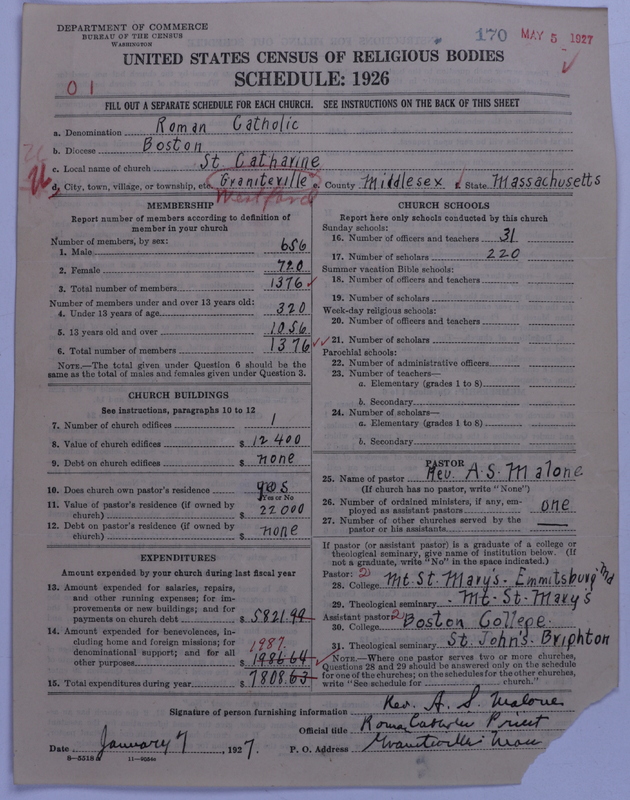 DEPARTMENT OF COMMERCE
BUREAU OF THE CENSUS
WASHINGTON
170 MAY 5 1927
UNITED STATES CENSUS OF RELIGIOUS BODIES
SCHEDULE: 1926
01
FILL OUT A SEPARATE SCHEDULE FOR EACH CHURCH. SEE INSTRUCTIONS ON THE BACK OF THIS SHEET
a. Denomination Roman Catholic
b. Diocese Boston
c. Local name of church St Catharine
d. City, town, village, or township, etc. Graniteville e. County Middlesex f. State Massachusetts
Westford
MEMBERSHIP
Report number of members according to definition of
member in your church
Number of members, by sex:
1. Male 656
2. Female 720
3. Total number of members 1376
Number of members under and over 13 years old:
4. Under 13 years of age 320
5. 13 years old and over 1056
6. Total number of members 1376
NOTE.—The total given under Question 6 should be
same as the total of males and females given under Question 3.
CHURCH BUILDINGS
See instructions, paragraphs 10 to 12
7. Number of church edifices 1
8. Value of church edifices $ 12400
9. Debt on church edifices $ none
10. Does church own pastor's residence yes
Yes or No
11. Value of pastor's residence (if owned by
church) $ 22000
12. Debt on pastor's residence (if owned by
church) $ none
EXPENDITURES
Amount expended by your church during last fiscal year
13. Amount expended for salaries, repairs,
and other running expenses; for im-
provements or new buildings; and for
payments on church debt $ 5821.99
14. Amount expended for benevolences, in-
cluding home and foreign missions; for
denominational support; and for all 1987.
other purposes $ 1986.64
15. Total expenditures during year $ 7808.63
CHURCH SCHOOLS
Report here only schools conducted by this church
Sunday schools:
16. Number of officers and teachers 31
17. Number of scholars 220
Summer vacation Bible schools:
18. Number of officers and teachers
19. Number of scholars
Week-day religious schools:
20. Number of officers and teachers
21. Number of scholars
Parochial schools:
22. Number of administrative officers
23. Number of teachers—
a. Elementary (grades 1 to 8)
b. Secondary
24. Number of scholars—
a. Elementary (grades 1 to 8)
b. Secondary
PASTOR
25. Name of pastor Rev. A. S. Malone
(If church has no pastor, write "None")
26. Number of ordained ministers, if any, em-
ployed as assistant pastors one
27. Number of other churches served by the
pastor or his assistants
If pastor (or assistant pastor) is a graduate of a college or
theological seminary, give name of institution below. (If
not a graduate, write "No" in the space indicated.)
Pastor: 2
28. College Mt. St. Mary's - Emmitsburg Md
29. Theological seminary Mt. St. Mary's
Assistant pastor: 2
30. College Boston College
31. Theological seminary St. John's Brighton
NOTE.—Where one pastor serves two or more churches,
Questions 28 and 29 should be answered only on the schedule
for one of the churches; on the schedules for the other churches,
write "See schedule for church."
Signature of person furnishing information Rev. A. S. Malone
Official title Roman Catholic Priest
Date January 7, 1927. P. O. Address Graniteville Mass
8—5518 11—9054